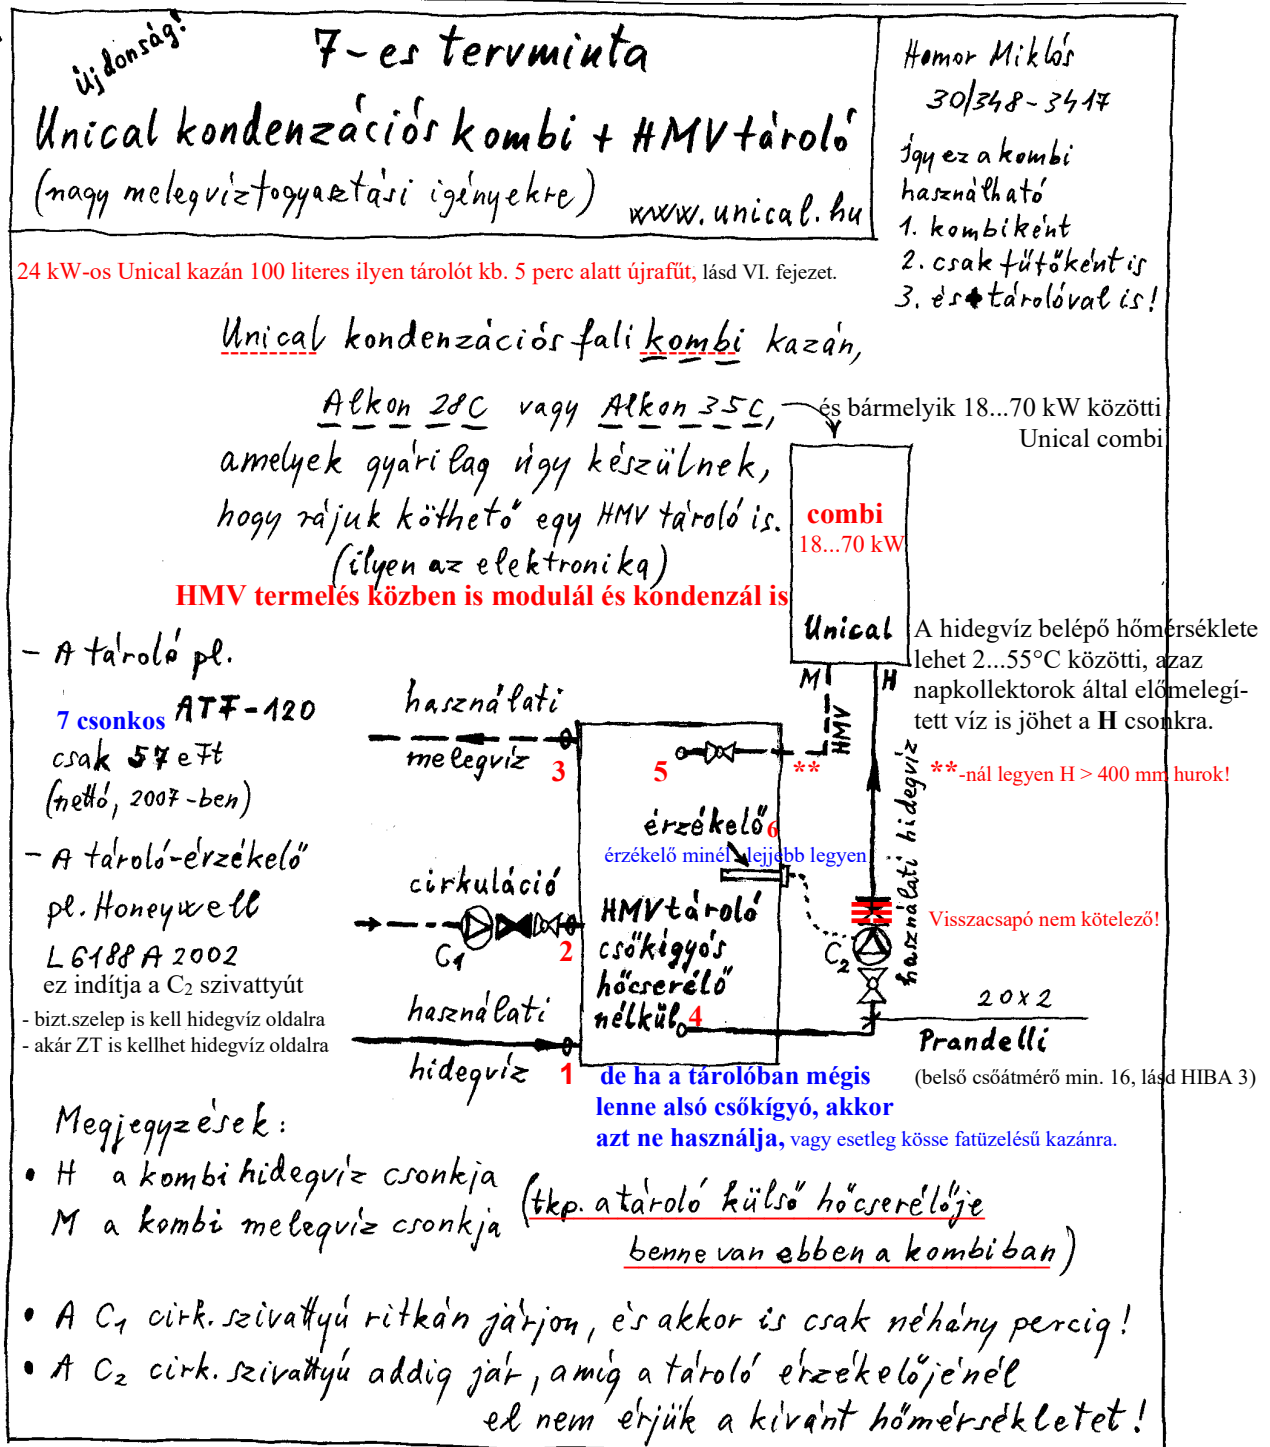 újdonság!
7-es tervminta
Unical kondenzációs kombi + HMV tároló
(nagy melegvízfogyasztási igényekre)
www.unical.hu
Homor Miklós
30/348-3417
Így ez a kombi
használható
1. kombiként
2. csak fűtőként is
3. és tárolóval is!
24 kW-os Unical kazán 100 literes ilyen tárolót kb. 5 perc alatt újrafűt, lásd VI. fejezet.
Unical kondenzációs fali kombi kazán,
Alkon 28C vagy Alkon 35C,
és bármelyik 18...70 kW közötti
Unical combi
amelyek gyárilag úgy készülnek,
hogy rájuk köthető egy HMV tároló is.
(ilyen az elektronika)
HMV termelés közben is modulál és kondenzál is
combi
18...70 kW
Unical
M
H
A hidegvíz belépő hőmérséklete
lehet 2...55°C közötti, azaz
napkollektorok által előmelegí-
tett víz is jöhet a H csonkra.
**-nál legyen H > 400 mm hurok!
- A tároló pl.
7 csonkos ATF-120
csak 57 eFt
(nettó, 2007-ben)
- A tároló-érzékelő
pl. Honeywell
L6188A2002
ez indítja a C2 szivattyút
- bizt.szelep is kell hidegvíz oldalra
- akár ZT is kellhet hidegvíz oldalra
használati
melegvíz
3
5
**
HMV
érzékelő 6
érzékelő minél lejjebb legyen
cirkuláció
C1
2
HMV tároló
csőkígyós
hőcserélő
nélkül
4
használati
hidegvíz
1
használati hidegvíz
Visszacsapó nem kötelező!
C2
20x2
Prandelli
(belső csőátmérő min. 16, lásd HIBA 3)
de ha a tárolóban mégis
lenne alsó csőkígyó, akkor
azt ne használja, vagy esetleg kösse fatüzelésű kazánra.
Megjegyzések:
• H a kombi hidegvíz csonkja
M a kombi melegvíz csonkja
(tkp. a tároló külső hőcserélője
benne van ebben a kombiban)
• A C1 cirk. szivattyú ritkán járjon, és akkor is csak néhány percig!
• A C2 cirk. szivattyú addig jár, amíg a tároló érzékelőjénél
el nem érjük a kívánt hőmérsékletet!